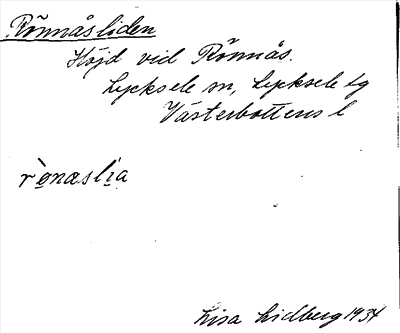 Rönnåsliden
Höjd vid Rönnås.
Lycksele sn, Lycksele lg
Västerbottens l
rònæslìa
Lisa Lidberg 1934